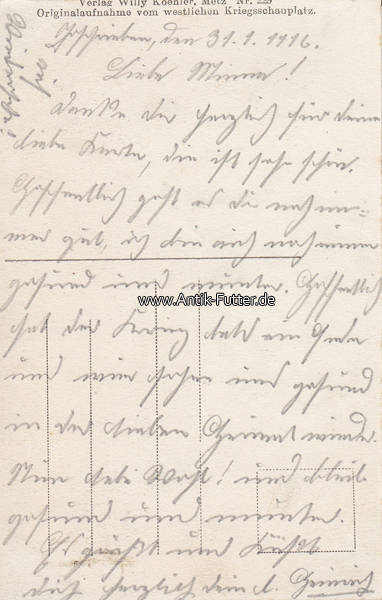 Verlag Willy Koehler, Metz Nr. 225
Originalaufnahme vom westlichen Kriegsschauplatz.
auf
Wiedersehn!
Geschrieben, den 31.1.1916.
Liebe Minna!
Danke dir herzlich für deine
liebe Karte, die ist sehr schön.
Hoffentlich geht es dir noch im-
mer gut, ich bin auch noch immer
gesund und munter. Hoffentlich
hat der Krieg bald ein Ende
und wir sehen uns gesund
in der lieben Heimat wieder.
Nun lebe Wohl! und bleib
gesund und munter.
Es grüßt und Küßt
dich herzlich dein l. Heinrich
www.Antik-Futter.de